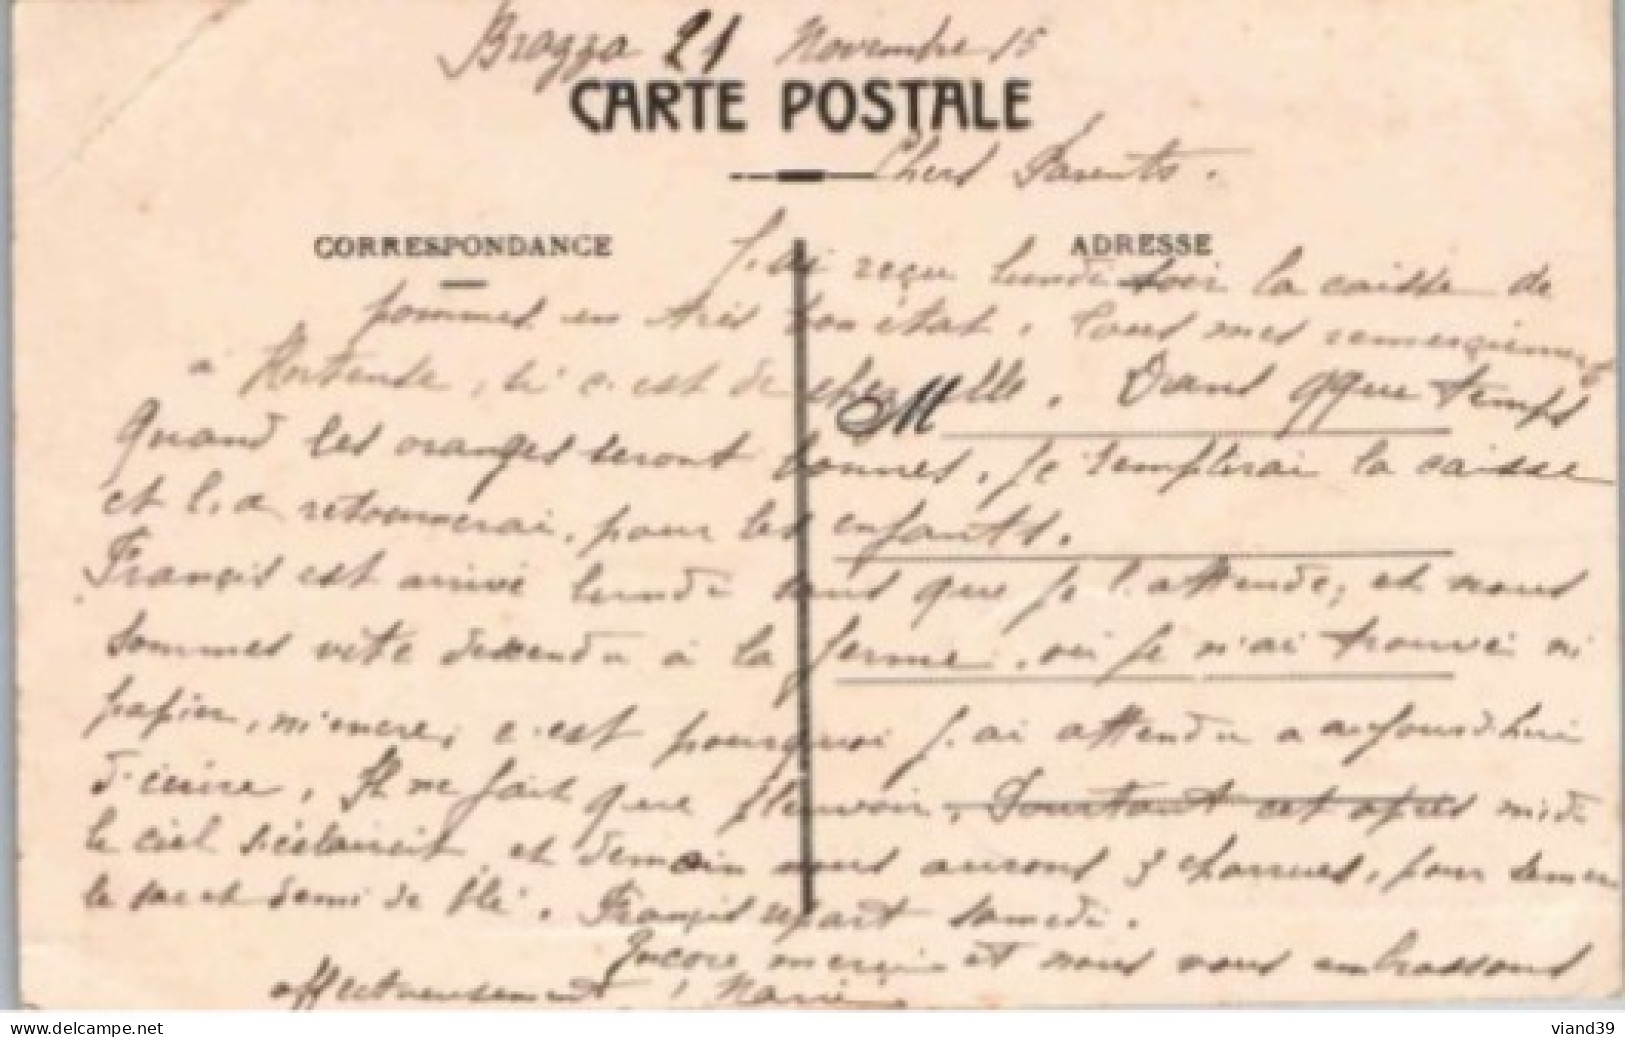 Bragga 21 Novembre 15
CARTE POSTALE
Chers Parents.
CORRESPONDANCE
ADRESSE
J'ai reçu lundi soir la caisse de
pommes en très bon état. Tous mes remerciements
à Hortense, si c'est de chez elle. Dans qque temps
M
Quand les oranges seront bonnes, je remplirai la caisse
et l.a retournerai, pour les enfants.
Françis est arrivé lundi sans que je l'attende, et nous
sommes vite descendu à la ferme, où je n'ai trouvé ni
papier, ni encre, c'est pourquoi j'ai attendu a aujourd'hui
d'écrire. Il ne fait que pleuvoir, Pourtant cet après midi
le ciel s'éclaircit et demain nous aurons 3 charrues, pour semer
le sac et demi de blé. Françis repart samedi.
Encore merci et nous vous embrassons
affectueusement, Marie
viand39